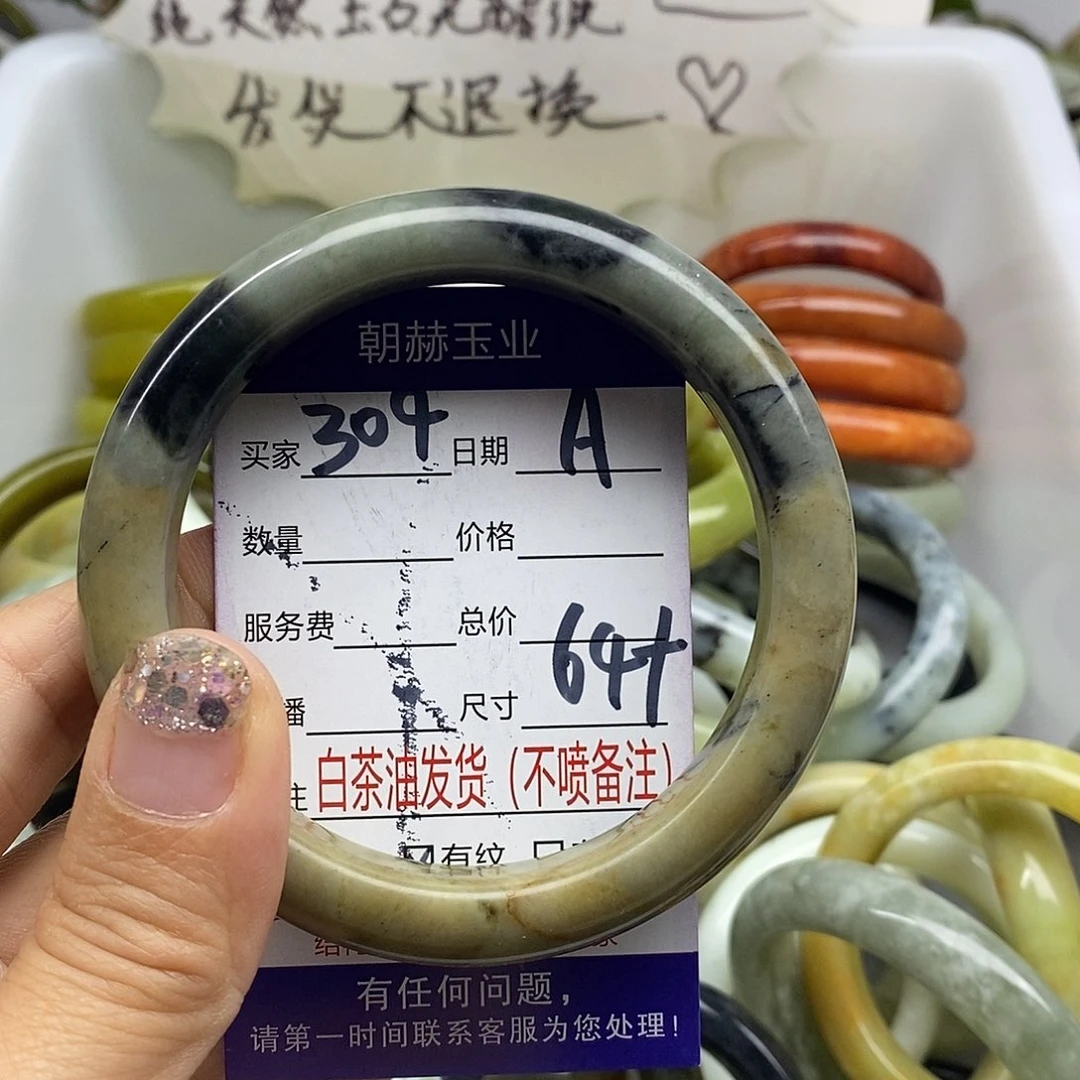 纯天然玉石无酸洗
售货不退换
朝赫玉业
买家 304 日期 A
数量 价格
服务费 总价
播 尺寸 64+
注 白茶油发货（不喷备注）
☑有纹 □
有任何问题，
请第一时间联系客服为您处理！